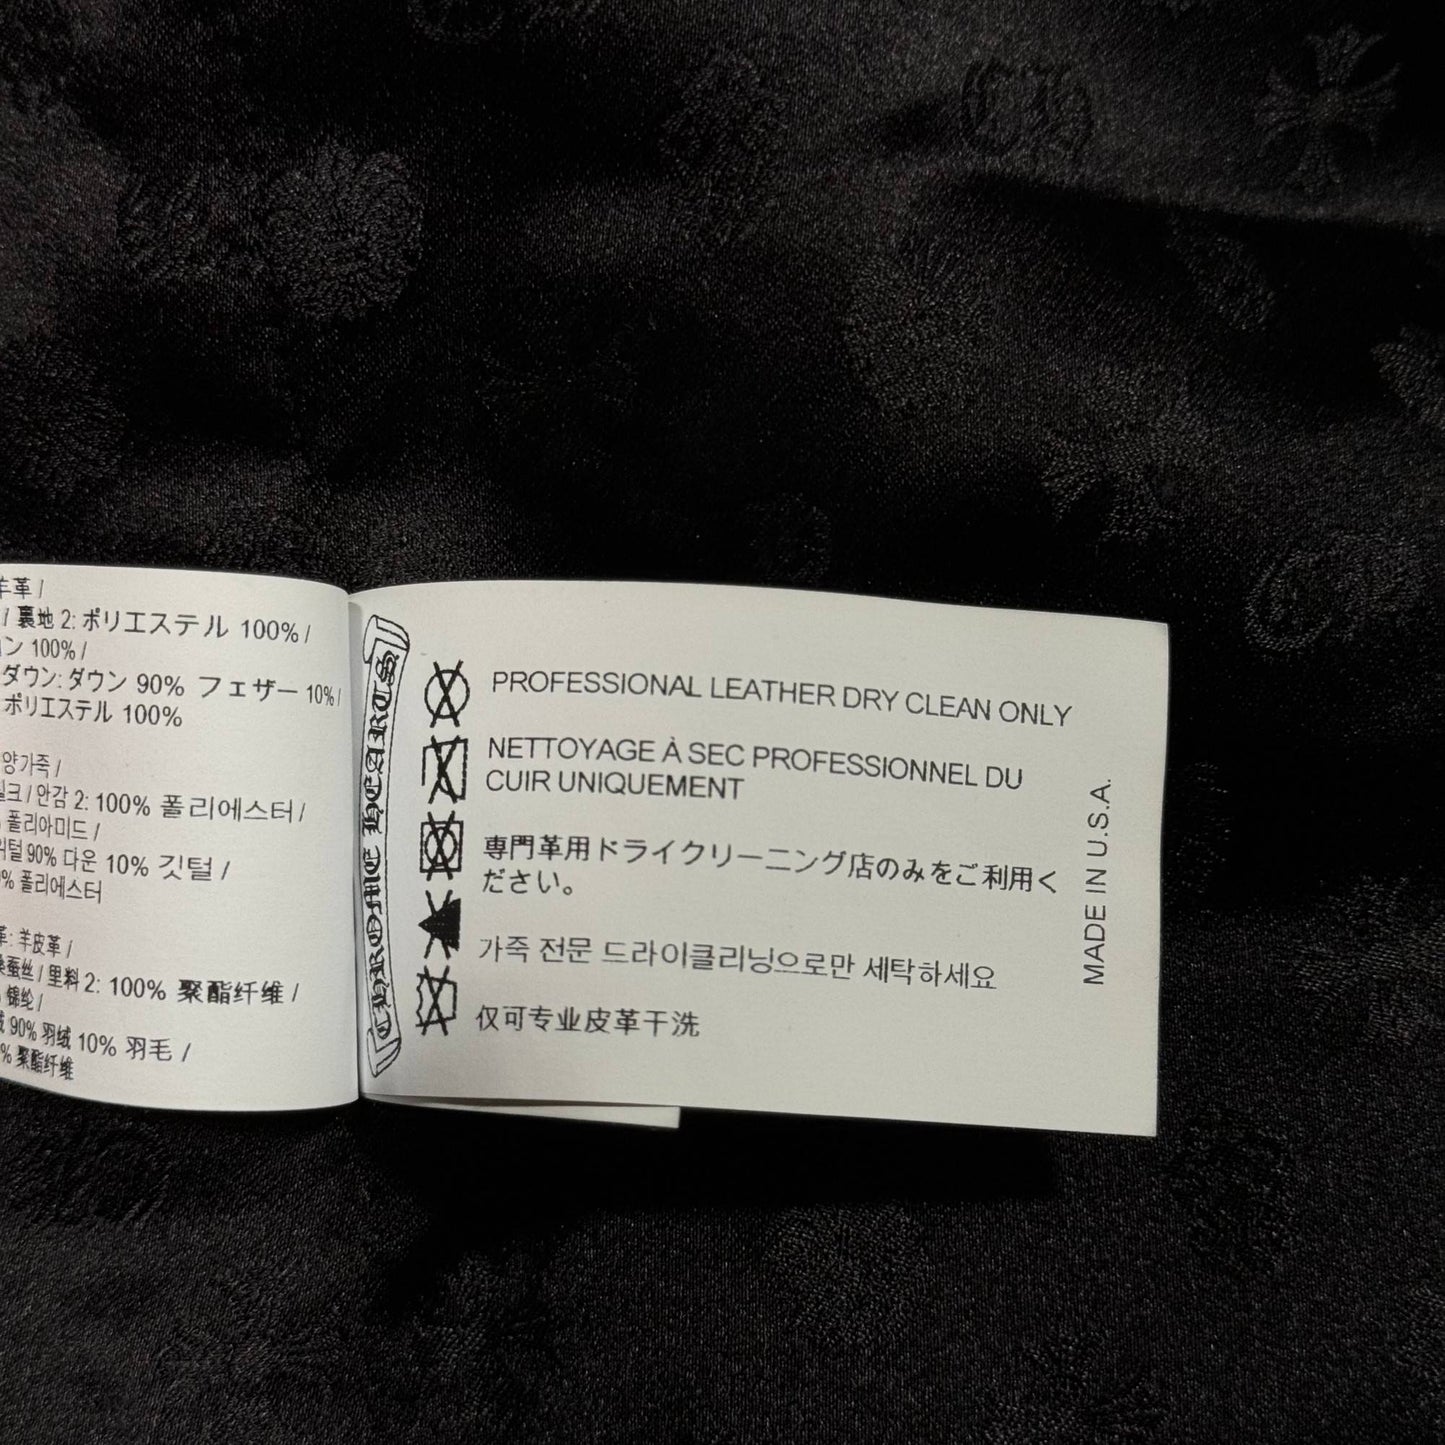 羊革 /
/ 裏地 2: ポリエステル 100% /
ン 100% /
ダウン: ダウン 90% フェザー 10% /
ポリエステル 100%
양가죽 /
실크 / 안감 2: 100% 폴리에스터 /
폴리아미드 /
90% 다운 10% 깃털 /
% 폴리에스터
革: 羊皮革 /
蚕丝 / 里料 2: 100% 聚酯纤维 /
锦纶 /
90% 羽绒 10% 羽毛 /
% 聚酯纤维
CHROME HEARTS
PROFESSIONAL LEATHER DRY CLEAN ONLY
NETTOYAGE À SEC PROFESSIONNEL DU
CUIR UNIQUEMENT
専門革用ドライクリーニング店のみをご利用く
ださい。
가죽 전문 드라이클리닝으로만 세탁하세요
仅可专业皮革干洗
MADE IN U.S.A.
CH